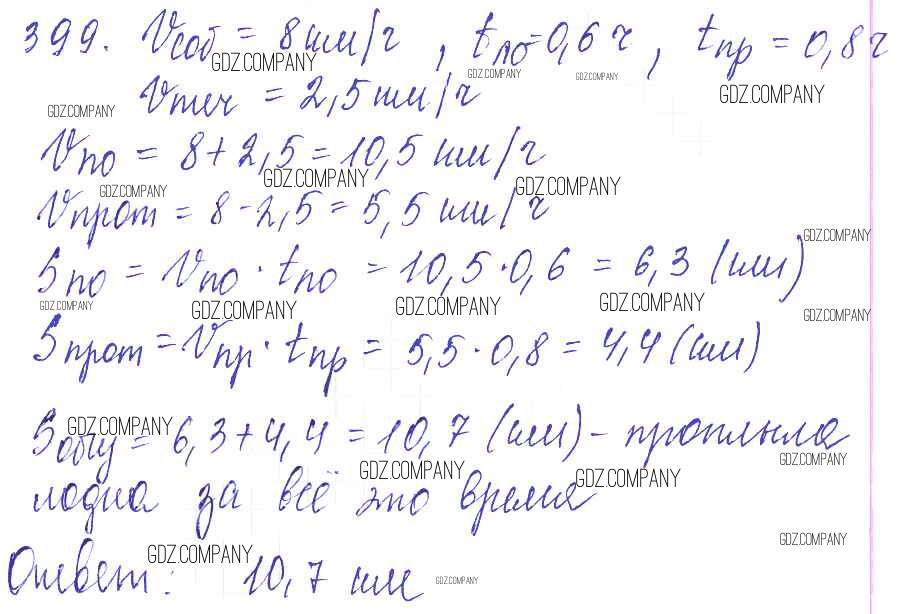 399. Vсоб = 8 км/ч, tпо = 0,6 ч, tпр = 0,8 ч
GDZ.COMPANY GDZ.COMPANY GDZ.COMPANY
Vтеч = 2,5 км/ч
GDZ.COMPANY GDZ.COMPANY
Vпо = 8 + 2,5 = 10,5 км/ч
GDZ.COMPANY GDZ.COMPANY GDZ.COMPANY
Vпрот = 8 - 2,5 = 5,5 км/ч
GDZ.COMPANY
Sпо = Vпо · tпо = 10,5 · 0,6 = 6,3 (км)
GDZ.COMPANY GDZ.COMPANY GDZ.COMPANY GDZ.COMPANY GDZ.COMPANY
Sпрот = Vпр · tпр = 5,5 · 0,8 = 4,4 (км)
GDZ.COMPANY
Sобщ = 6,3 + 4,4 = 10,7 (км) - проплыла
GDZ.COMPANY GDZ.COMPANY GDZ.COMPANY
лодка за всё это время
GDZ.COMPANY GDZ.COMPANY
Ответ: 10,7 км
GDZ.COMPANY